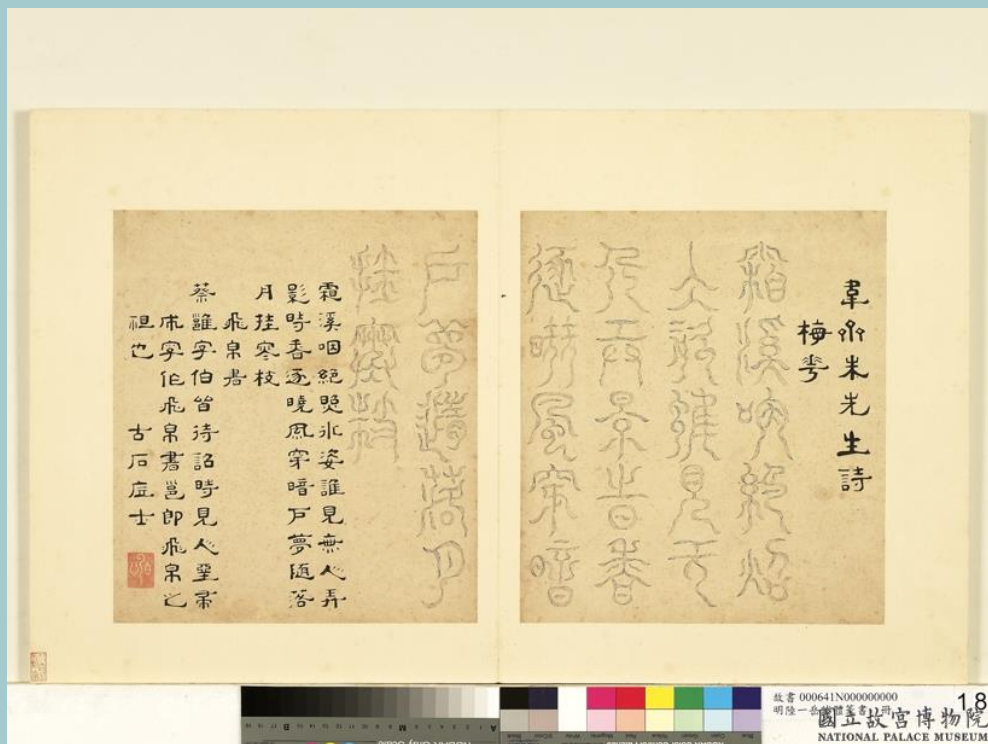 韋齋朱先生詩
梅花
霜溪咽絕炤
冰姿誰見无
人弄景時香
逐曉風穿暗
戶夢隨落月
挂寒枝
霜溪咽絕照氷姿誰見無人弄
影時香逐曉風穿暗戶夢随落
月挂寒枝
飛帛書
蔡邕字伯喈待詔時見人堊帚
成字作飛帛書邕即飛帛之
祖也 古石 士
故書 000641N000000000
明陸一岳 體篆書 冊
18
國立故宮博物院
NATIONAL PALACE MUSEUM